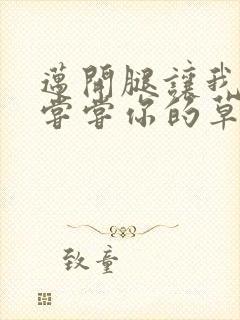 邁開腿讓我
嘗嘗你的草
致童